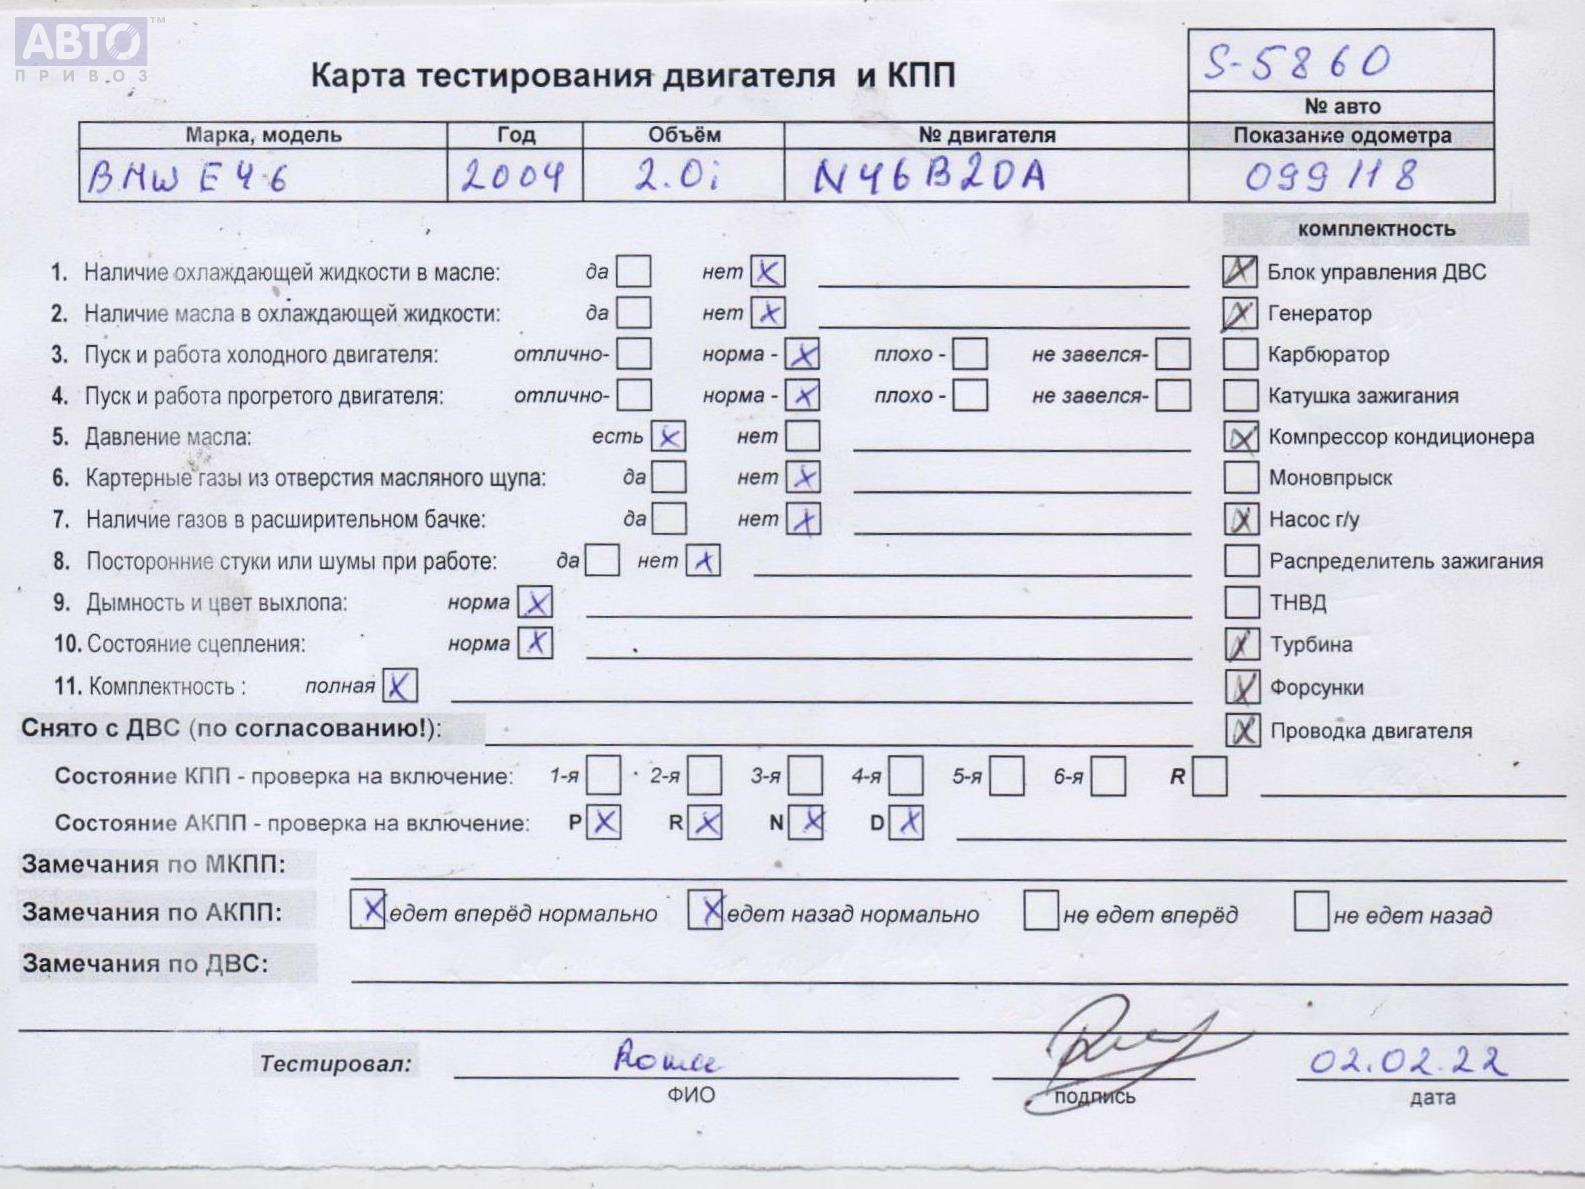 АВТО™
ПРИВОЗ
Карта тестирования двигателя и КПП
S-5860
№ авто
Марка, модель Год Объём № двигателя Показание одометра
BMW E46 2004 2.0i N46B20A 099118
комплектность
1. Наличие охлаждающей жидкости в масле: да нет X X Блок управления ДВС
2. Наличие масла в охлаждающей жидкости: да нет X X Генератор
3. Пуск и работа холодного двигателя: отлично- норма - X плохо - не завелся- Карбюратор
4. Пуск и работа прогретого двигателя: отлично- норма - X плохо - не завелся- Катушка зажигания
5. Давление масла: есть X нет X Компрессор кондиционера
6. Картерные газы из отверстия масляного щупа: да нет X Моновпрыск
7. Наличие газов в расширительном бачке: да нет X X Насос г/у
8. Посторонние стуки или шумы при работе: да нет X Распределитель зажигания
9. Дымность и цвет выхлопа: норма X ТНВД
10. Состояние сцепления: норма X X Турбина
11. Комплектность : полная X X Форсунки
Снято с ДВС (по согласованию!): X Проводка двигателя
Состояние КПП - проверка на включение: 1-я 2-я 3-я 4-я 5-я 6-я R
Состояние АКПП - проверка на включение: P X R X N X D X
Замечания по МКПП:
Замечания по АКПП: X едет вперёд нормально X едет назад нормально не едет вперёд не едет назад
Замечания по ДВС:
Тестировал: 02.02.22
ФИО подпись дата